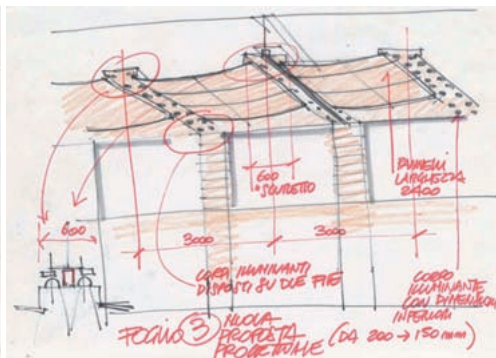 600
SCURETTO
PANNELLI
LARGHEZZA
2400
600
3000
3000
CORPI ILLUMINANTI
DISPOSTI SU DUE FILE
CORPO
ILLUMINANTE
CON DIMENSIONI
INFERIORI
(DA 200 → 150 mm)
FOGLIO 3 NUOVA
PROPOSTA
PROGETTUALE